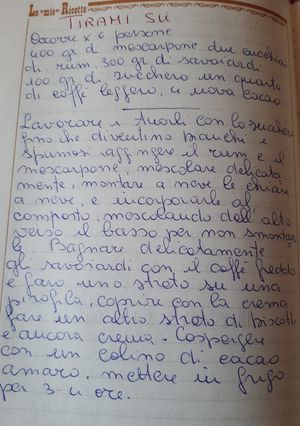 Le "mie" Ricette
TIRAMI SU
Occorre x 6 persone
400 gr di mascarpone due cucchiai
di rum, 300 gr di savoiardi
100 gr di zucchero un quarto
di caffè leggero, 4 uova cacao
Lavorare i tuorli con lo zucchero
fino che diventino bianchi e
spumosi aggiungere il rum e il
mascarpone, mescolare delicata
mente, montare a neve le chiare
a neve, e incorporarle al
composto, mescolando dall'alto
verso il basso per non smontar
le. Bagnare delicatamente
gli savoiardi con il caffè freddo
e fare uno strato su una
pirofila, coprire con la crema
fare un altro strato di biscotti
e ancora crema. Cospargere
con un colino di cacao
amaro. mettere in frigo
per 3-4 ore.